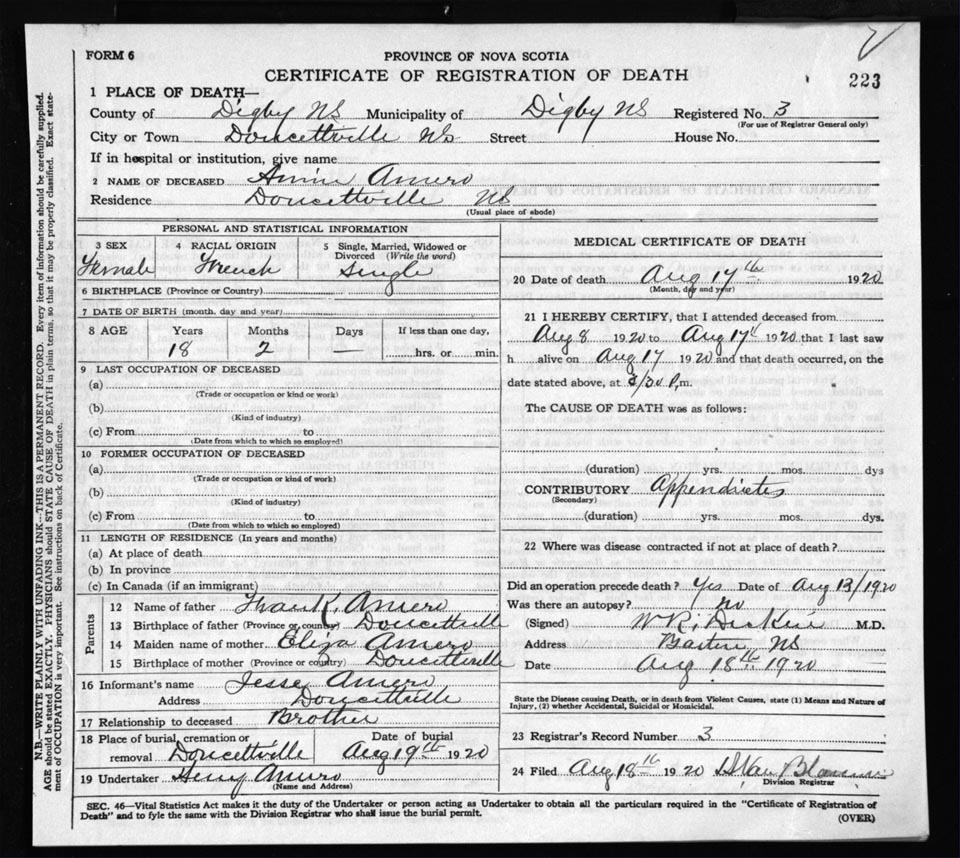 FORM 6
PROVINCE OF NOVA SCOTIA
CERTIFICATE OF REGISTRATION OF DEATH
223
1 PLACE OF DEATH—
County of Digby NS Municipality of Digby NS Registered No. 3
(For use of Registrar General only)
City or Town Doucettville NS Street House No.
If in hospital or institution, give name
2 NAME OF DECEASED Annie Amero
Residence Doucettville NS
(Usual place of abode)
PERSONAL AND STATISTICAL INFORMATION
3 SEX 4 RACIAL ORIGIN 5 Single, Married, Widowed or Divorced (Write the word)
Female French Single
6 BIRTHPLACE (Province or Country)
7 DATE OF BIRTH (month, day and year)
8 AGE Years Months Days If less than one day,
18 2 — hrs. or min.
9 LAST OCCUPATION OF DECEASED
(a)
(Trade or occupation or kind or work)
(b)
(Kind of industry)
(c) From to
(Date from which to which so employed)
10 FORMER OCCUPATION OF DECEASED
(a)
(Trade or occupation or kind of work)
(b)
(Kind of industry)
(c) From to
(Date from which to which so employed)
11 LENGTH OF RESIDENCE (In years and months)
(a) At place of death
(b) In province
(c) In Canada (if an immigrant)
Parents
12 Name of father Frank Amero
13 Birthplace of father (Province or country) Doucettville
14 Maiden name of mother Eliza Amero
15 Birthplace of mother (Province or country) Doucettville
16 Informant's name Jesse Amero
Address Doucettville
17 Relationship to deceased Brother
18 Place of burial, cremation or removal Doucettville
Date of burial Aug 19th 1920
19 Undertaker Henry Amero
(Name and Address)
MEDICAL CERTIFICATE OF DEATH
20 Date of death Aug 17th 1920
(Month, day and year)
21 I HEREBY CERTIFY, that I attended deceased from
Aug 8 1920 to Aug 17th 1920 that I last saw
h alive on Aug 17 1920 and that death occurred, on the
date stated above, at /30 P.m.
The CAUSE OF DEATH was as follows:
(duration) yrs. mos. dys
CONTRIBUTORY Appendicites
(Secondary)
(duration) yrs. mos. dys.
22 Where was disease contracted if not at place of death?
Did an operation precede death? Yes Date of Aug 13/1920
Was there an autopsy? no
(Signed) W.R. M.D.
Address NS
Date Aug 18th 1920
State the Disease causing Death, or in death from Violent Causes, state (1) Means and Nature of
Injury, (2) whether Accidental, Suicidal or Homicidal.
23 Registrar's Record Number 3
24 Filed Aug 18th 1920
Division Registrar
SEC. 46—Vital Statistics Act makes it the duty of the Undertaker or person acting as Undertaker to obtain all the particulars required in the "Certificate of Registration of
Death" and to fyle the same with the Division Registrar who shall issue the burial permit.
(OVER)
N.B.—WRITE PLAINLY WITH UNFADING INK—THIS IS A PERMANENT RECORD. Every item of information should be carefully supplied.
AGE should be stated EXACTLY. PHYSICIANS should STATE CAUSE OF DEATH in plain terms, so that it may be properly classified. Exact state-
ment of OCCUPATION is very important. See instructions on back of Certificate.